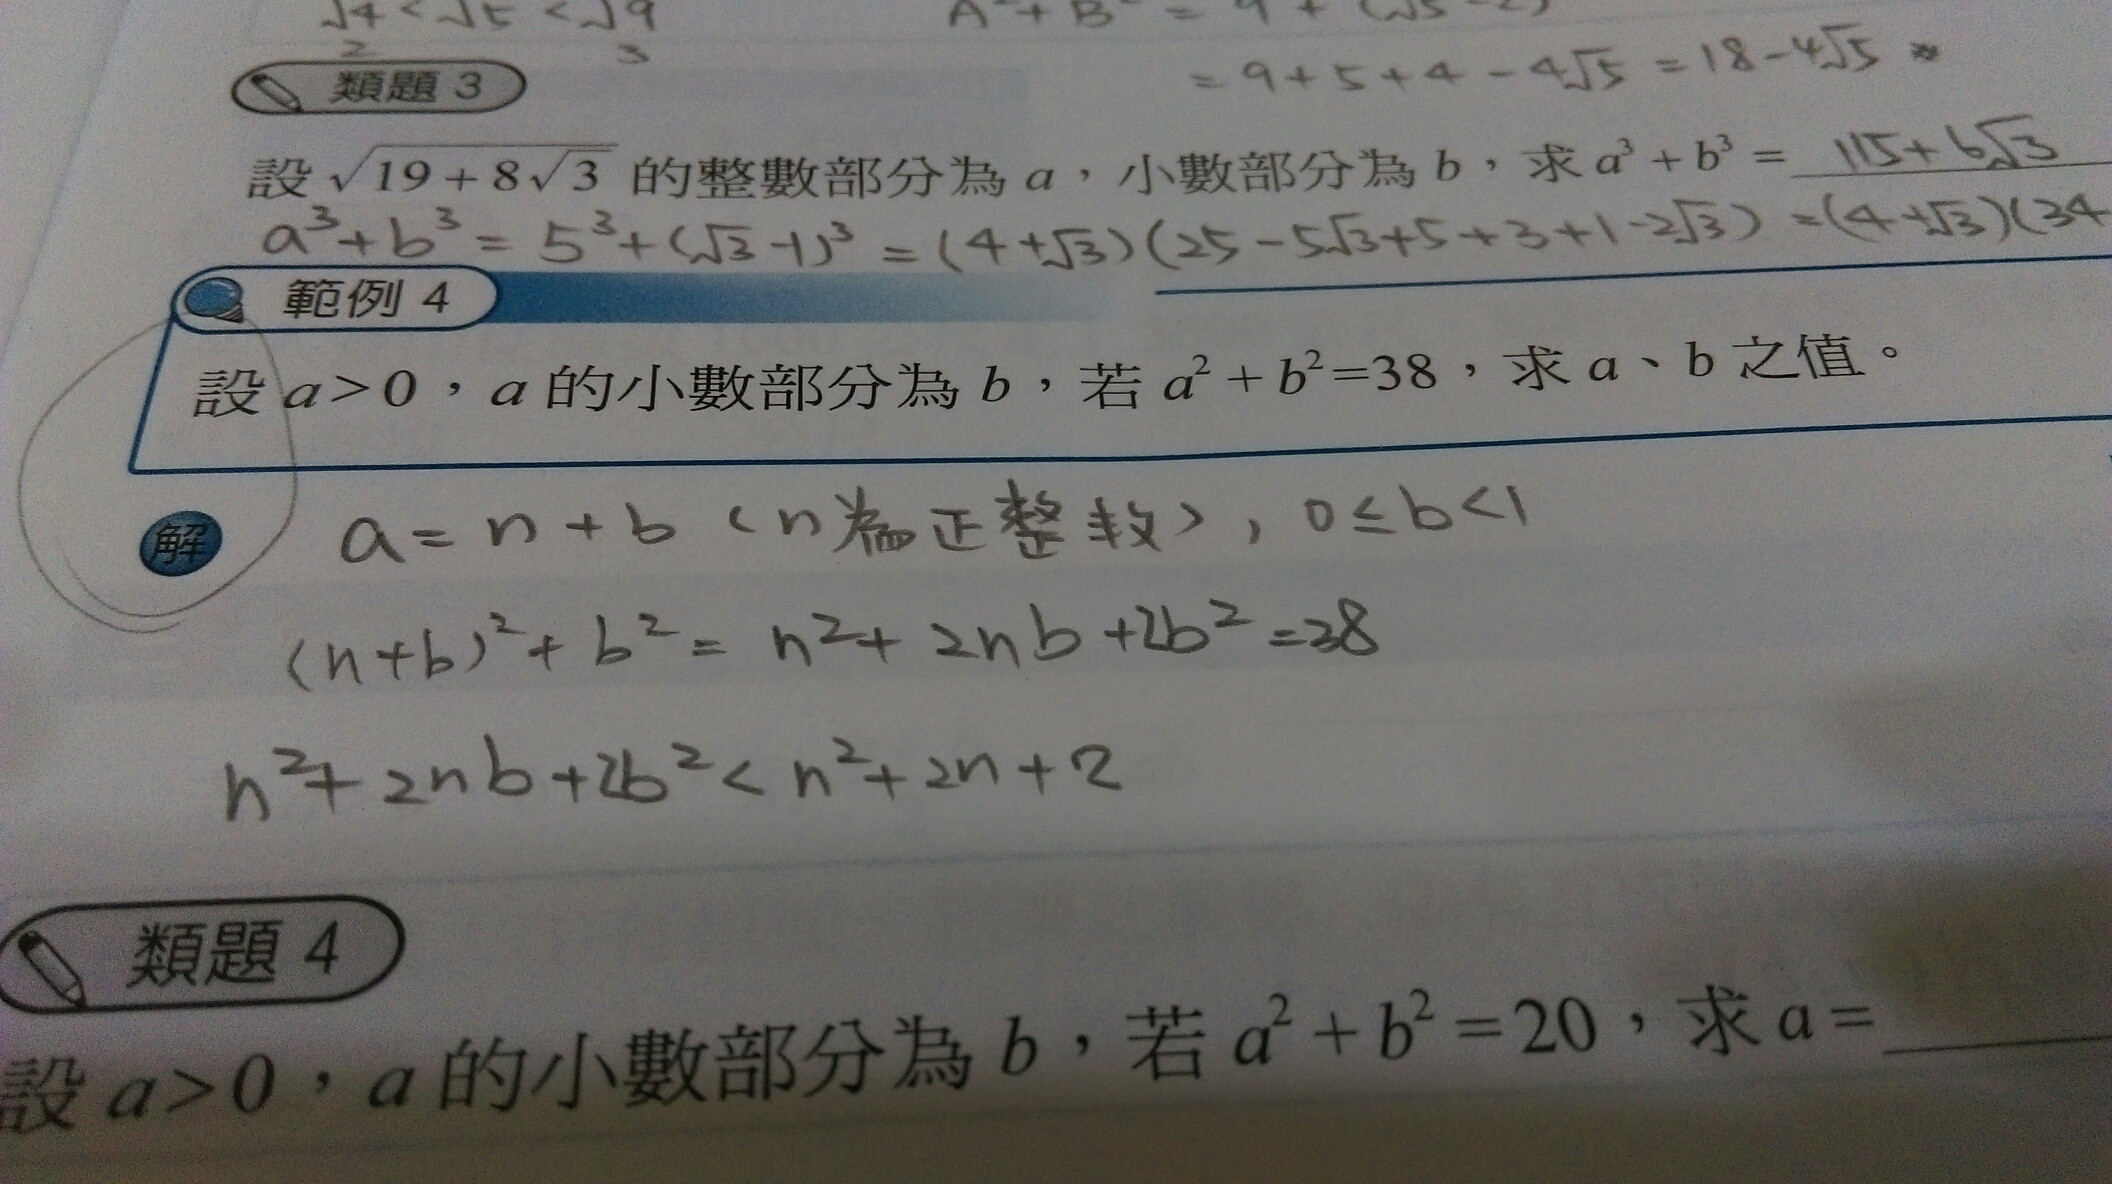 √4 < √5 < √9
2 3
A² + B² = 9 + (√5 - 2)
= 9 + 5 + 4 - 4√5 = 18 - 4√5 *
類題 3
設 √19 + 8√3 的整數部分為 a，小數部分為 b，求 a³ + b³ = 115 + 6√3
a³ + b³ = 5³ + (√3 - 1)³ = (4 + √3)(25 - 5√3 + 5 + 3 + 1 - 2√3) = (4 + √3)(34-
範例 4
設 a > 0，a 的小數部分為 b，若 a² + b² = 38，求 a、b 之值。
解
a = n + b (n為正整数), 0 ≤ b < 1
(n + b)² + b² = n² + 2nb + 2b² = 38
n² + 2nb + 2b² < n² + 2n + 2
類題 4
設 a > 0，a 的小數部分為 b，若 a² + b² = 20，求 a =